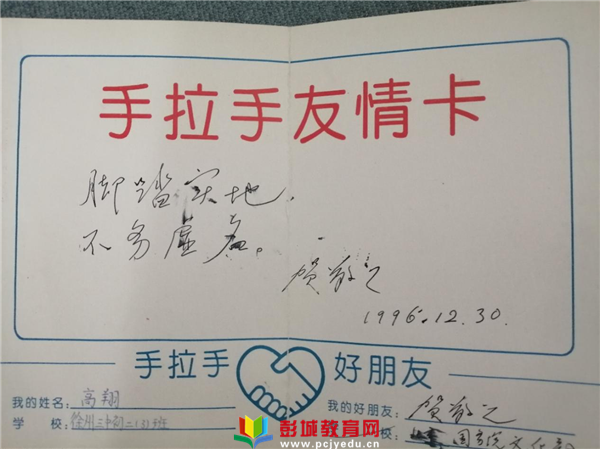 手拉手友情卡
脚踏实地，
不务虚名。
贺敬之
1996.12.30.
手拉手 好朋友
我的姓名：高翔
我的好朋友：贺敬之
学 校：徐州三中初二（3）班
校：国务院文化部
彭城教育网
www.pcjyedu.cn